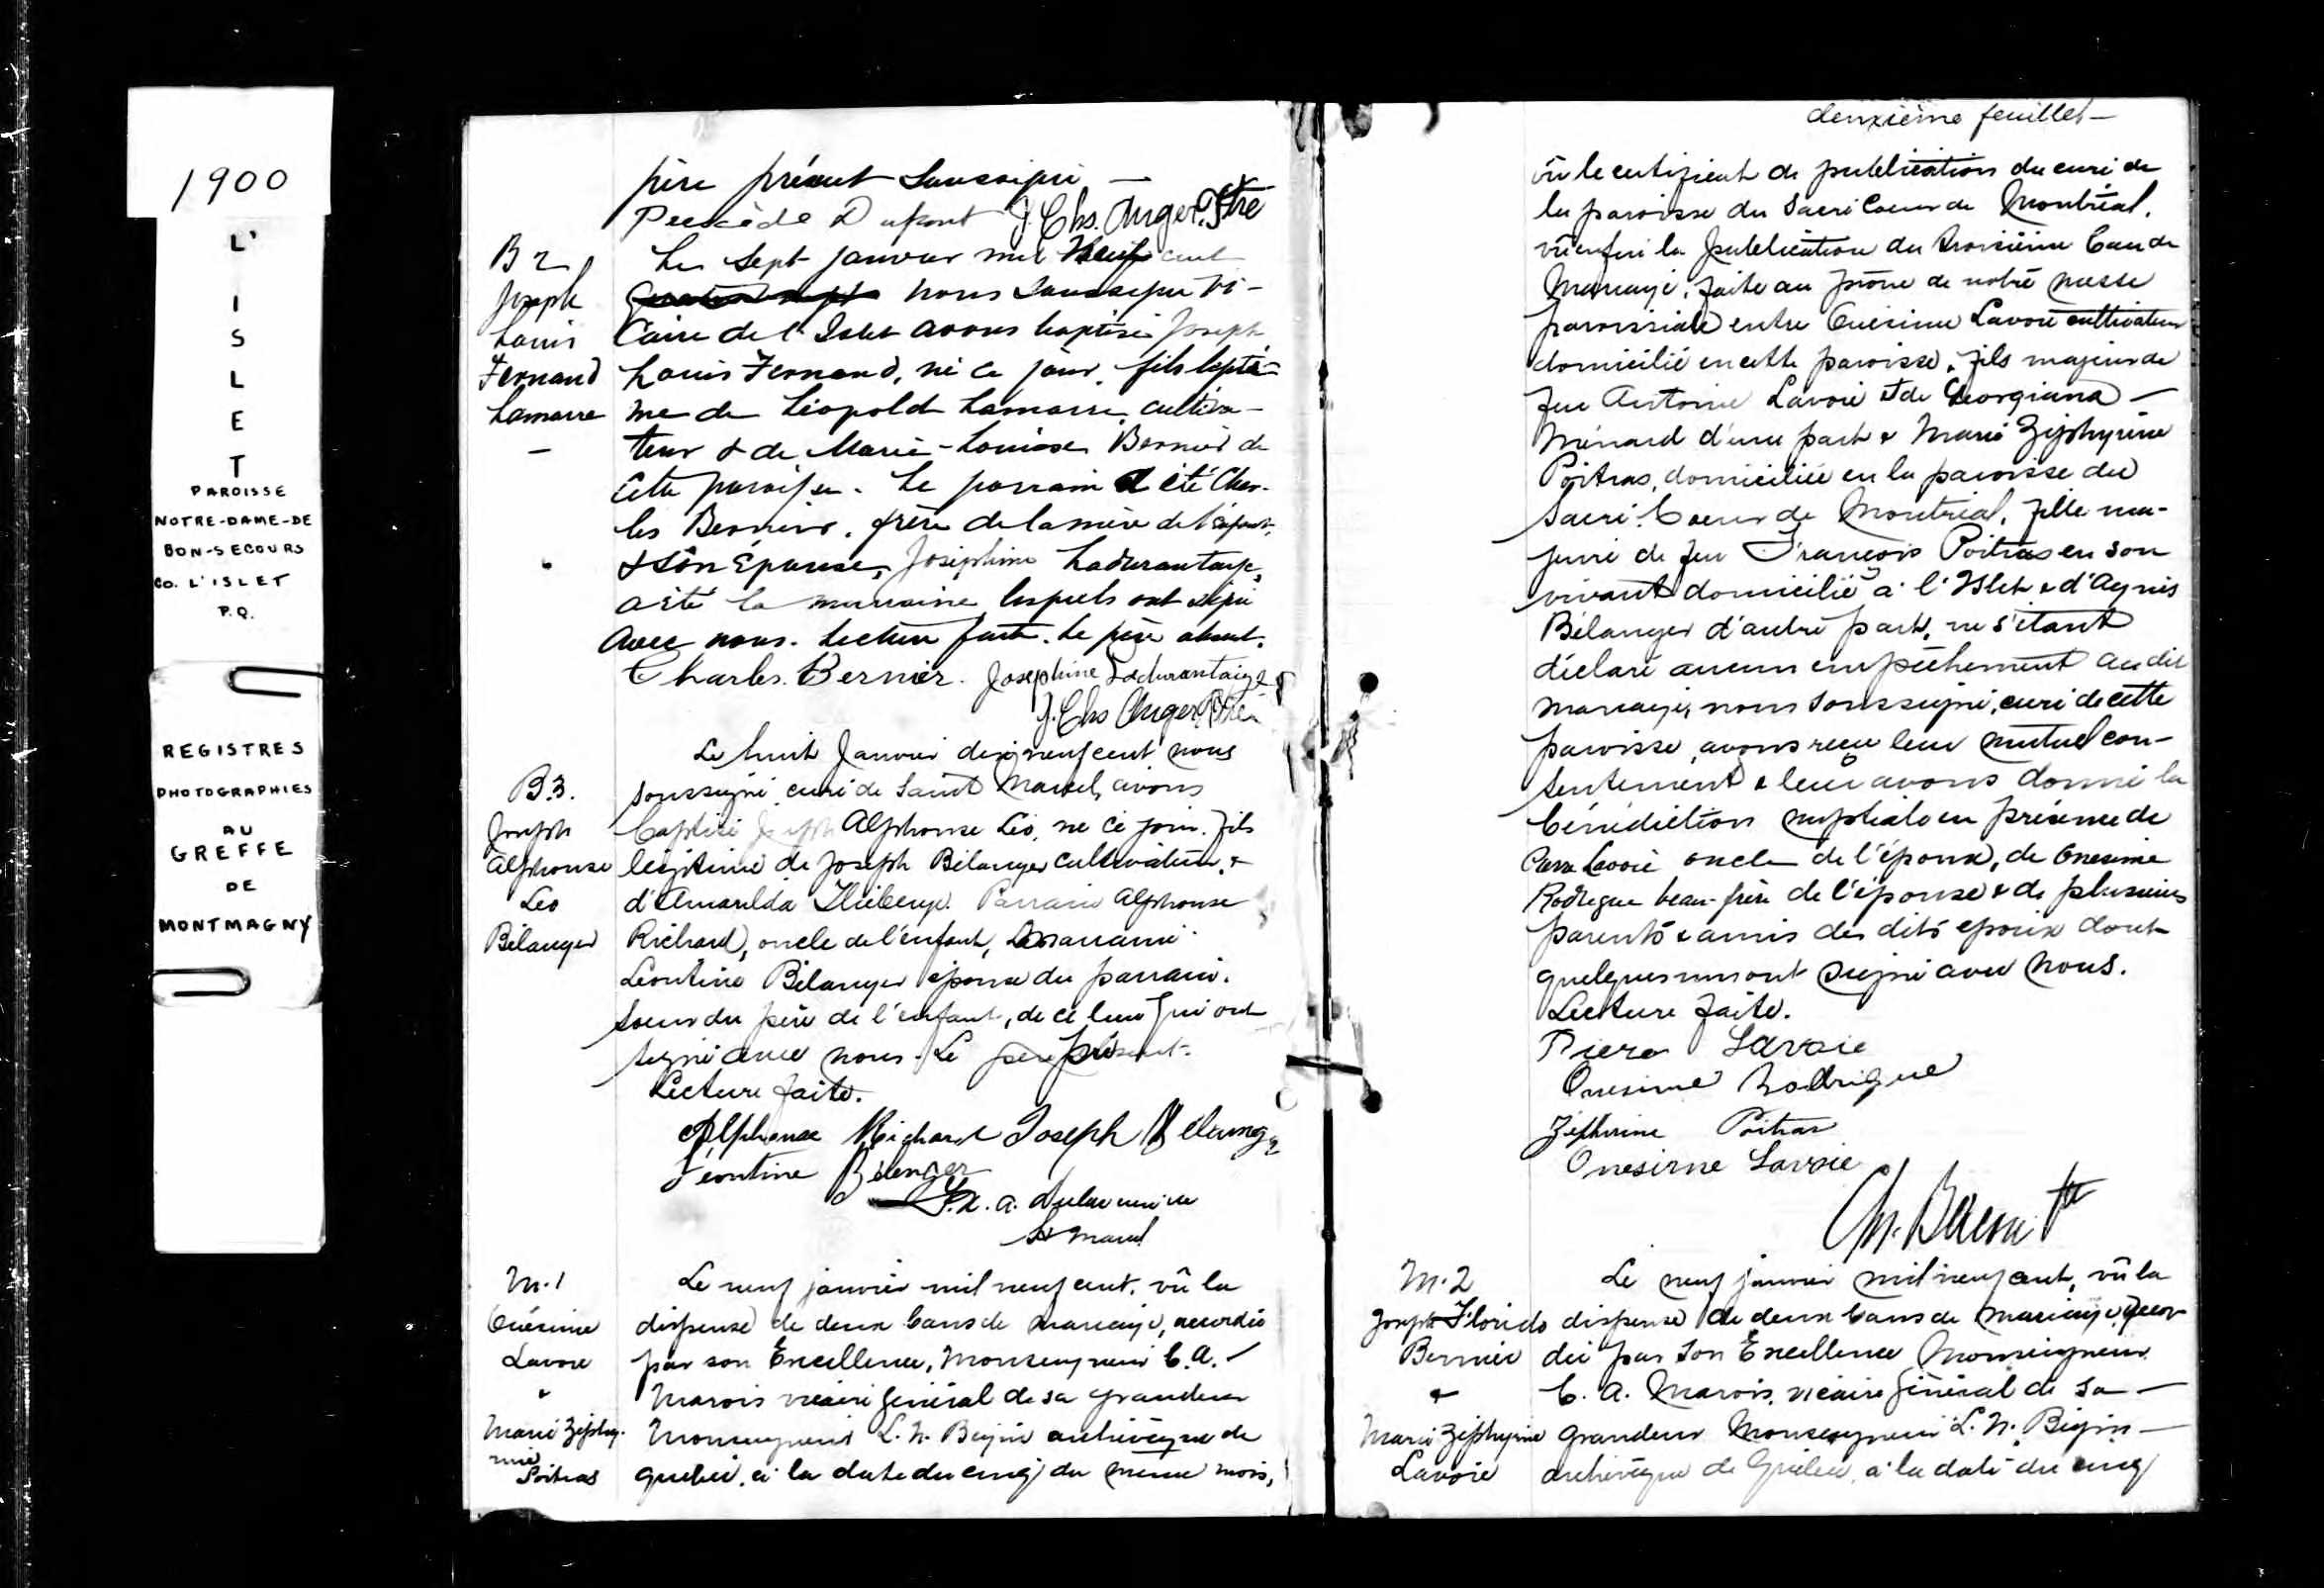 1900
L'
I
S
L
E
T
PAROISSE
NOTRE-DAME-DE
BON-SECOURS
Co. L'ISLET
P.Q.
REGISTRES
PHOTOGRAPHIES
AU
GREFFE
DE
MONTMAGNY
père présent soussigné —
Dupont J. Chs. Auger Ptre
B 2
Joseph
Louis
Fernand
Lamarre
—
Le sept janvier mil neuf cent
nous soussigné vi-
caire de l'Islet avons baptisé Joseph
Louis Fernand, né ce jour, fils légiti-
me de Léopold Lamarre cultiva-
teur & de Marie-Louise Bernier de
cette paroisse. Le parrain a été Char-
les Bernier, frère de la mère de l'enfant,
& son épouse, Joséphine Ladurantaye,
a été la marraine lesquels ont signé
avec nous. Lecture faite. Le père absent.
Charles. Bernier. Josephine Ladurantaige
J. Chs Auger Ptre
B.3.
Joseph
Alphonse
Leo
Bélanger
Le huit Janvier dix neuf cent nous
soussigné, curé de Saint Marcel, avons
baptisé Joseph Alphonse Léo, né ce jour, fils
légitime de Joseph Bélanger cultivateur, &
d'Amarilda Thiberge. Parrain Alphonse
Richard, oncle de l'enfant, Marraine
Léontine Bélanger épouse du parrain.
Soeur du père de l'enfant, de ce lieu qui ont
signé avec nous. Le père présent.
Lecture faite.
Alphonse Richard Joseph Bélanger
Léontine Bélanger
curé de
St Marcel
M.1
Onésime
Lavoie
&
Marie Zéphy-
rine
Poitras
Le neuf janvier mil neuf cent, vû la
dispense de deux bans de mariage, accordée
par son Excellence, Monseigneur C. A. —
Marois vicaire général de sa grandeur
Monseigneur L. N. Bégin archevêque de
Québec, à la date du cinq du même mois,
deuxième feuillet —
vû le certificat de publication du curé de
la paroisse du Sacré Coeur de Montréal,
vû enfin la publication du troisième ban de
Mariage, faite au prône de notre messe
paroissiale entre Onésime Lavoie cultivateur
domicilié en cette paroisse, fils majeur de
feu Antoine Lavoie et de Georgiana —
Ménard d'une part & Marie Zéphyrine
Poitras, domiciliée en la paroisse du
Sacré-Coeur de Montréal, fille ma-
jeure de feu François Poitras en son
vivant domicilié à l'Islet & d'Agnès
Bélanger d'autre part, ne s'étant
déclaré aucun empêchement au dit
mariage, nous soussigné, curé de cette
paroisse, avons reçu leur mutuel con-
sentement & leur avons donné la
bénédiction nuptiale en présence de
Pierre Lavoie oncle de l'époux, de Onesime
Rodrigue beau-frère de l'épouse & de plusieurs
parents & amis des dits époux dont
quelques uns ont signé avec nous.
Lecture faite.
Piere Lavoie
Onesime Rodrigue
Zéphirine Poitras
Onesime Lavoie
M.2
Joseph Florido
Bernier
&
Marie Zéphyrine
Lavoie
Le neuf janvier mil neuf cent, vû la
dispense de deux bans de mariage, accor-
dée par Son Excellence Monseigneur
C. A. Marois, vicaire général de sa —
grandeur Monseigneur L. N. Bégin —
archevêque de Québec, à la date du cinq